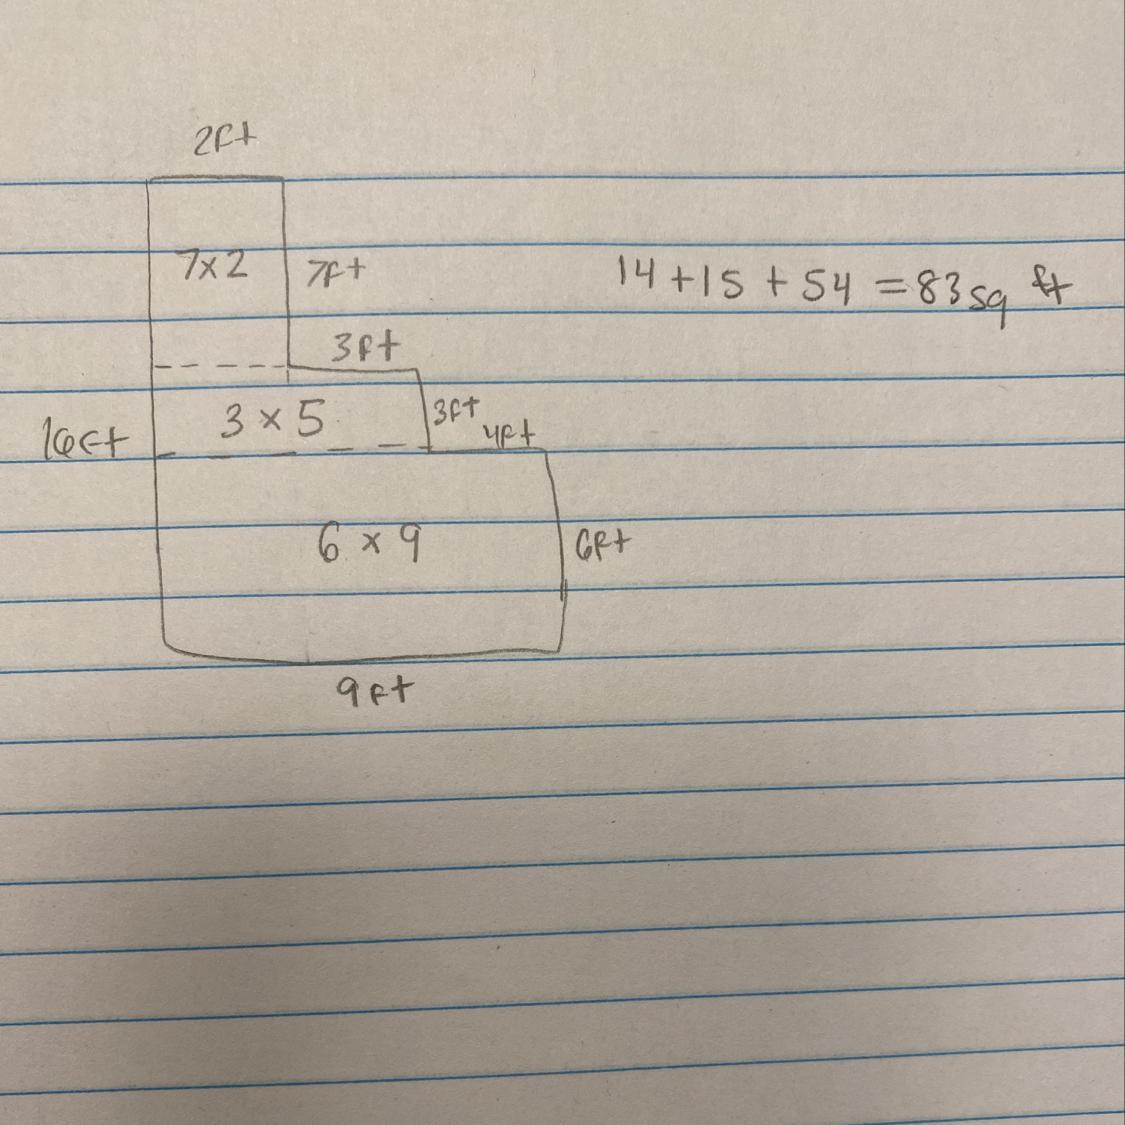 2ft
7x2
7ft
14 + 15 + 54 = 83 sq ft
3ft
3 x 5
3ft
4ft
16ft
6 x 9
6ft
9ft